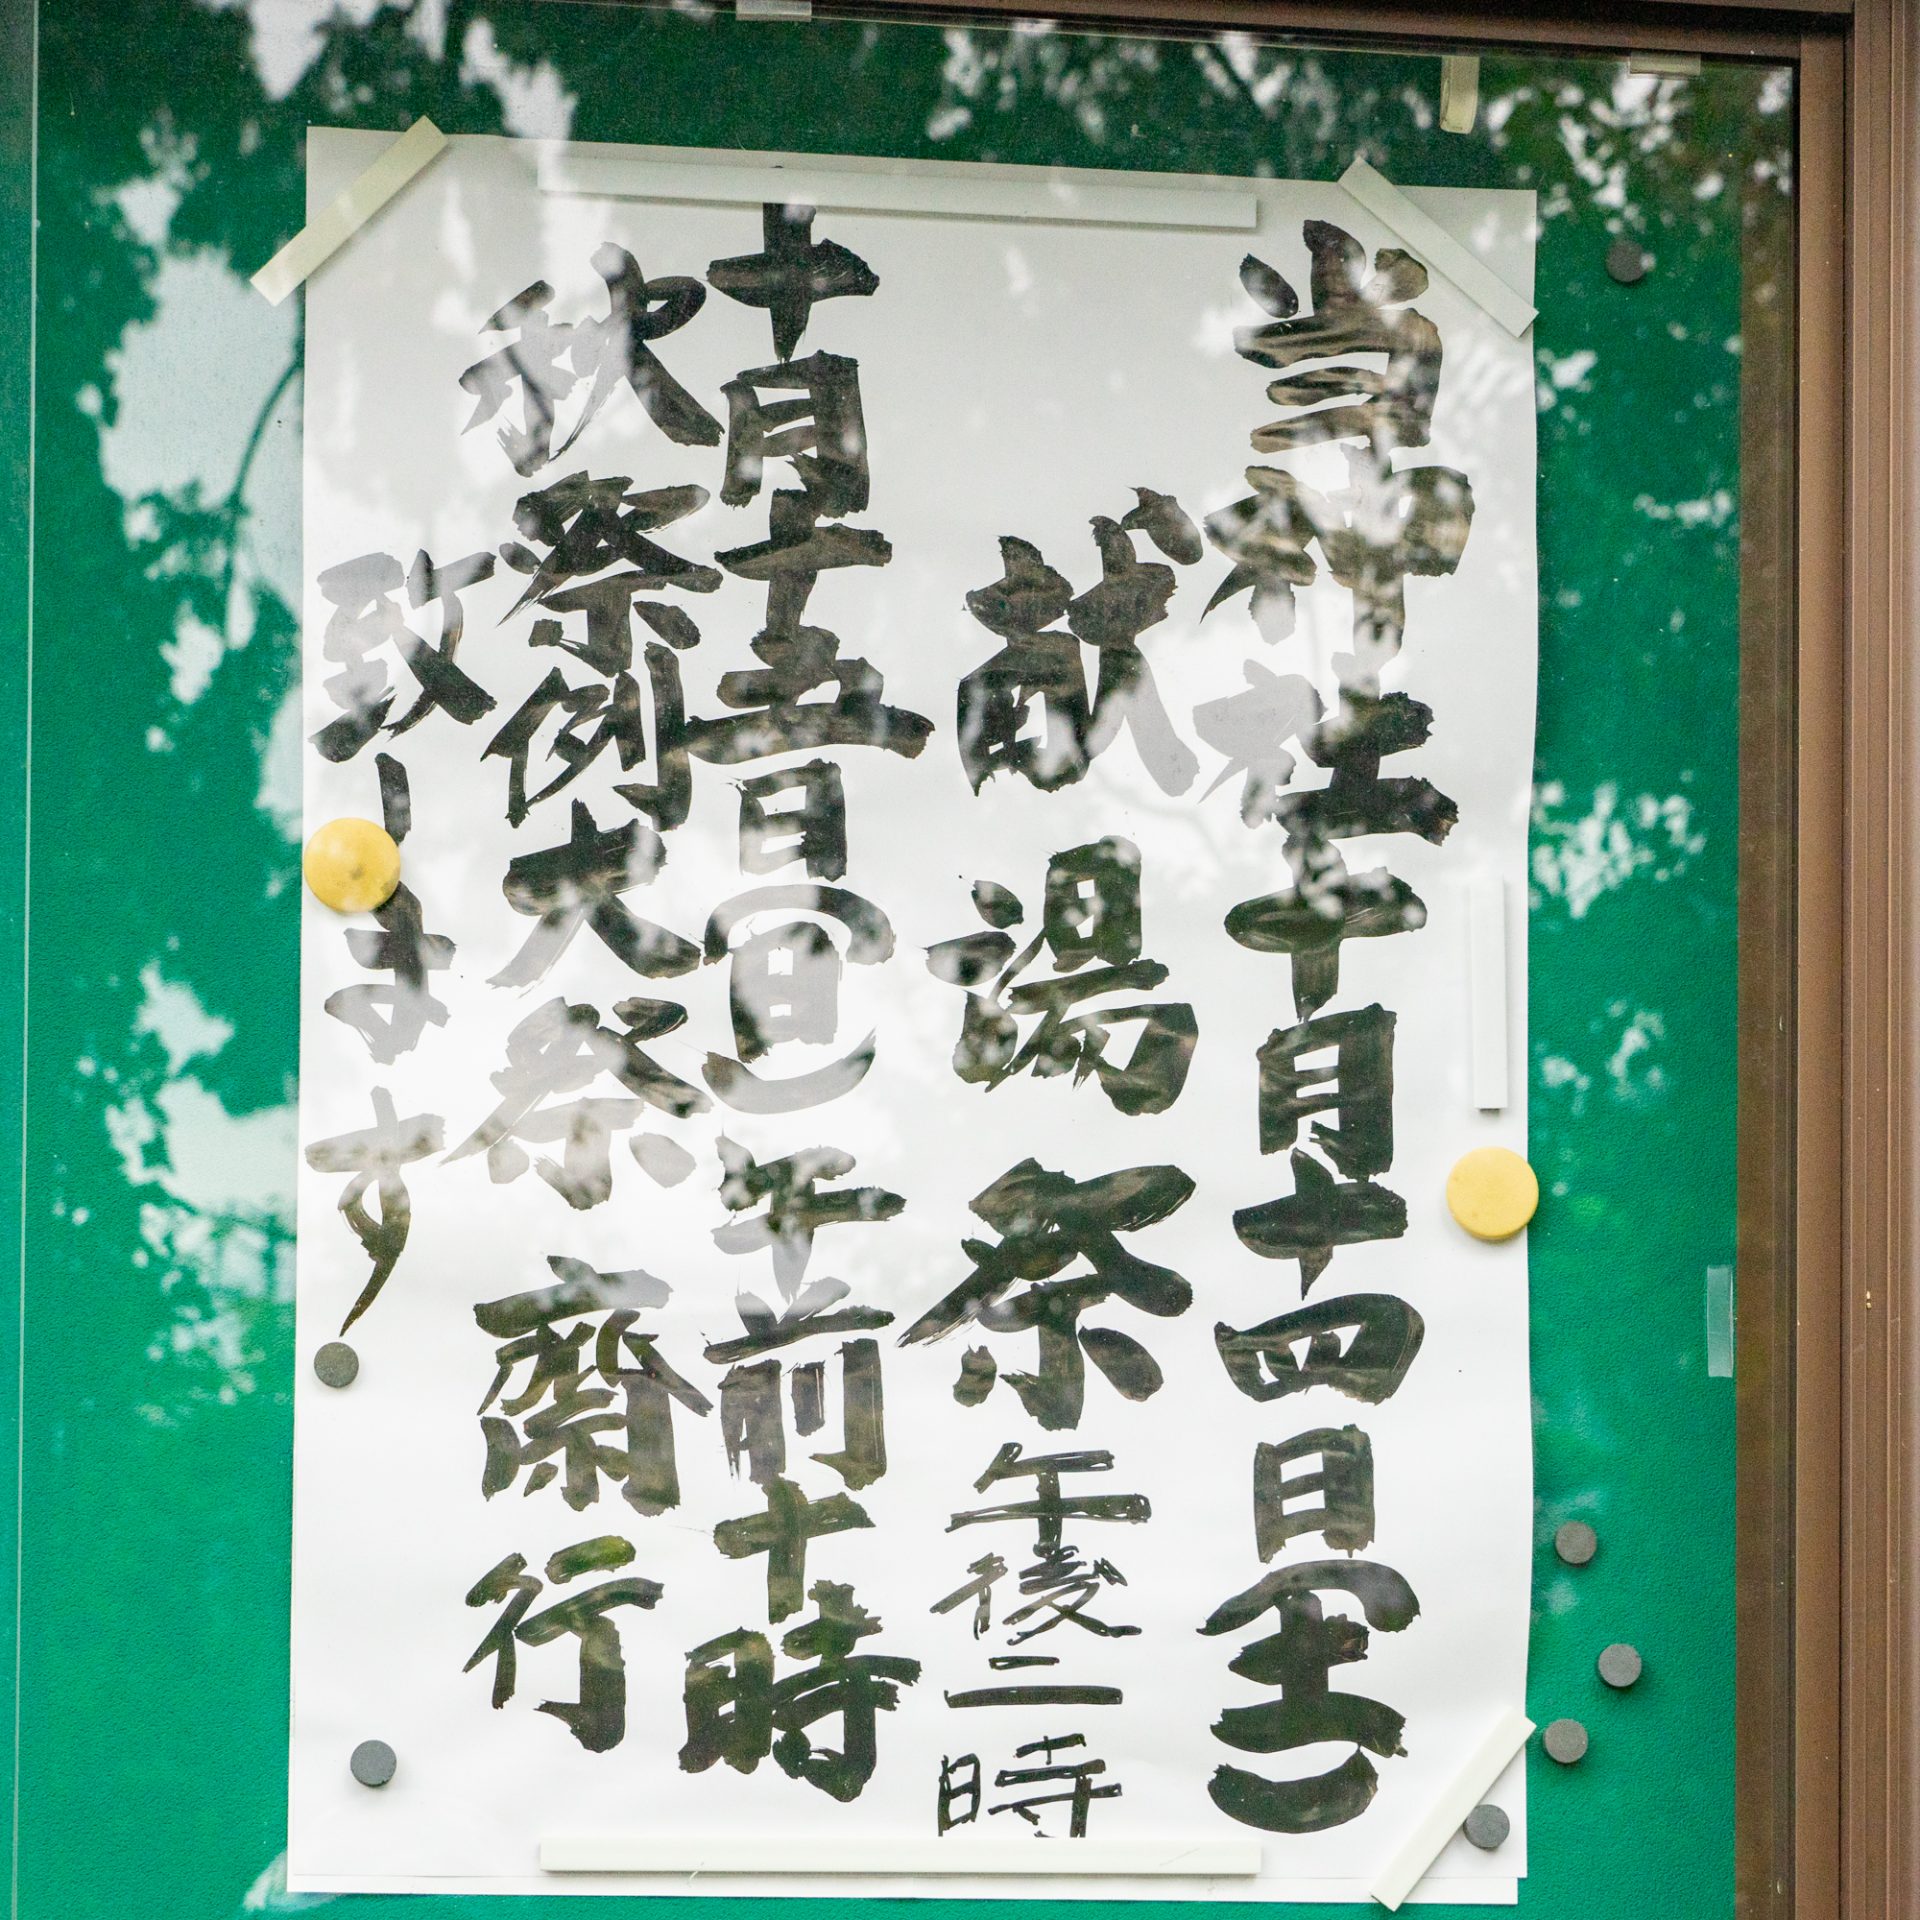 当神社十月十四日(土)
献湯祭午後二時
十月十五日(日)午前十時
秋祭例大祭斎行
致します